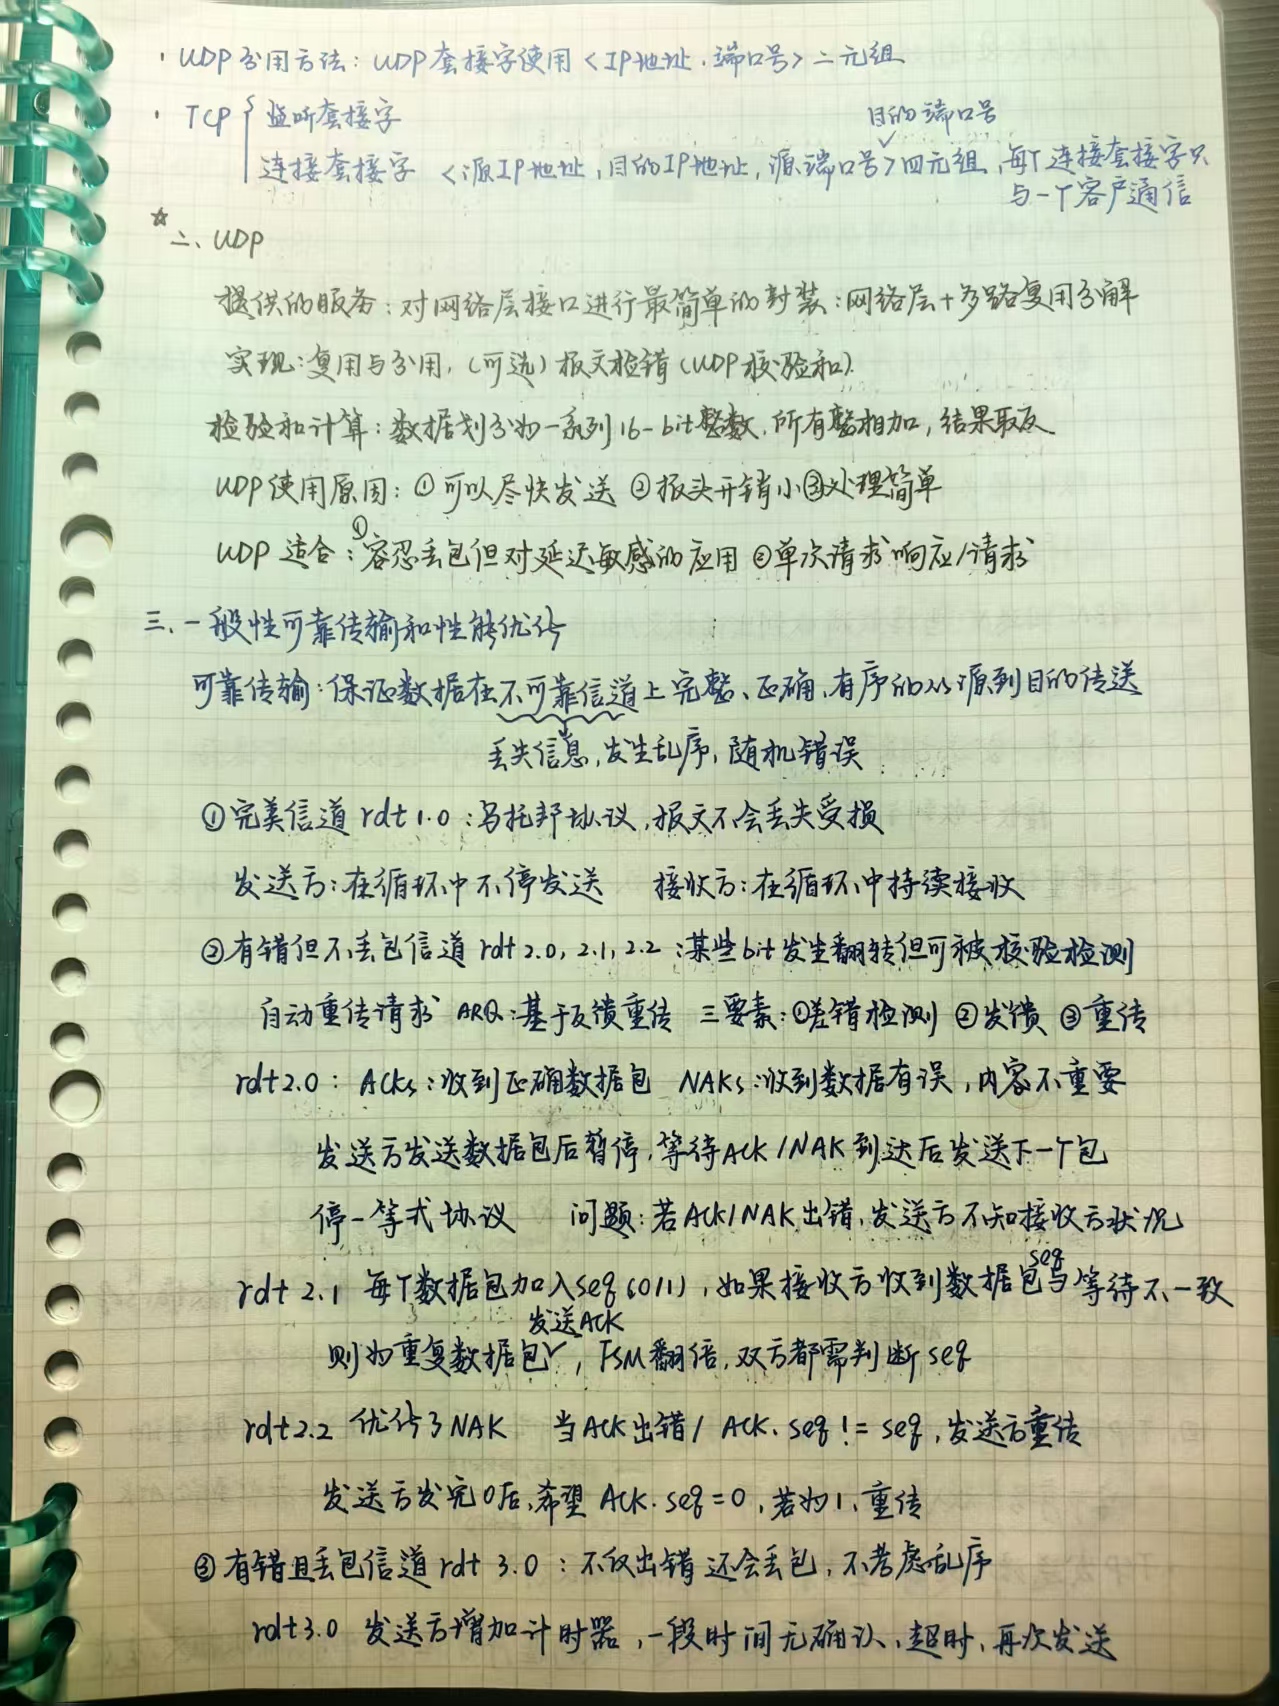 · UDP分用方法：UDP套接字使用<IP地址，端口号>二元组
· TCP { 监听套接字
目的端口号
连接套接字 <源IP地址，目的IP地址，源端口号>四元组，每个连接套接字只
与一个客户通信
☆二、UDP
提供的服务：对网络层接口进行最简单的封装：网络层+多路复用分解
实现：复用与分用，（可选）报文检错（UDP校验和）
检验和计算：数据划分为一系列16-bit整数，所有整相加，结果取反
UDP使用原因：①可以尽快发送 ②报头开销小③处理简单
UDP适合：①容忍丢包但对延迟敏感的应用 ②单次请求响应/请求
三、一般性可靠传输和性能优化
可靠传输：保证数据在不可靠信道上完整、正确、有序的从源到目的传送
丢失信息，发生乱序，随机错误
①完美信道rdt1.0：乌托邦协议，报文不会丢失受损
发送方：在循环中不停发送 接收方：在循环中持续接收
②有错但不丢包信道rdt2.0，2.1，2.2：某些bit发生翻转但可被校验检测
自动重传请求 ARQ：基于反馈重传 三要素：①差错检测 ②发馈 ③重传
rdt2.0：ACKs：收到正确数据包 NAKs：收到数据有误，内容不重要
发送方发送数据包后暂停，等待ACK/NAK到达后发送下一个包
停-等式协议 问题：若ACK/NAK出错，发送方不知接收方状况
rdt2.1 每个数据包加入seq(0/1)，如果接收方收到数据包seq与等待不一致
则为重复数据包发送ACK，FSM翻倍，双方都需判断seq
rdt2.2 优化了NAK 当ACK出错/ ACK.seq != seq，发送方重传
发送方发完0后，希望ACK.seq=0，若为1，重传
③有错且丢包信道rdt 3.0：不仅出错还会丢包，不考虑乱序
rdt3.0 发送方增加计时器，一段时间无确认，超时，再次发送